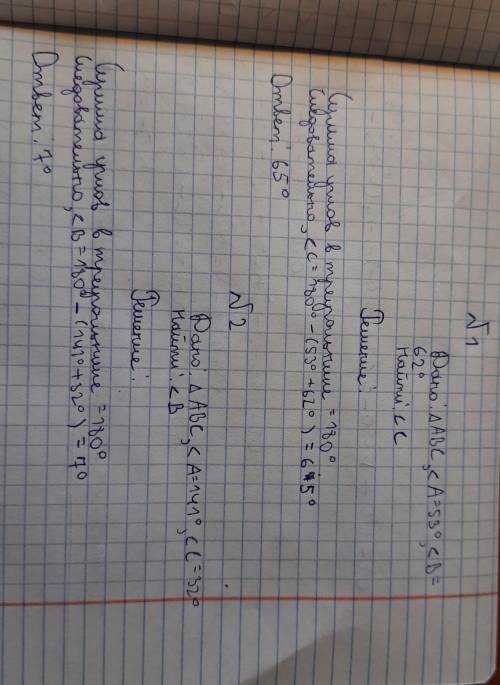 №1
Дано: ΔABC, <A=53°, <B=
62°
Найти: <C
Решение:
Сумма углов в треугольнике = 180°
Следовательно, <C=180°-(53°+62°)=65°
Ответ: 65°
№2
Дано: ΔABC, <A=141°, <C=32°
Найти: <B
Решение:
Сумма углов в треугольнике = 180°
Следовательно, <B=180°-(141°+32°)=7°
Ответ: 7°